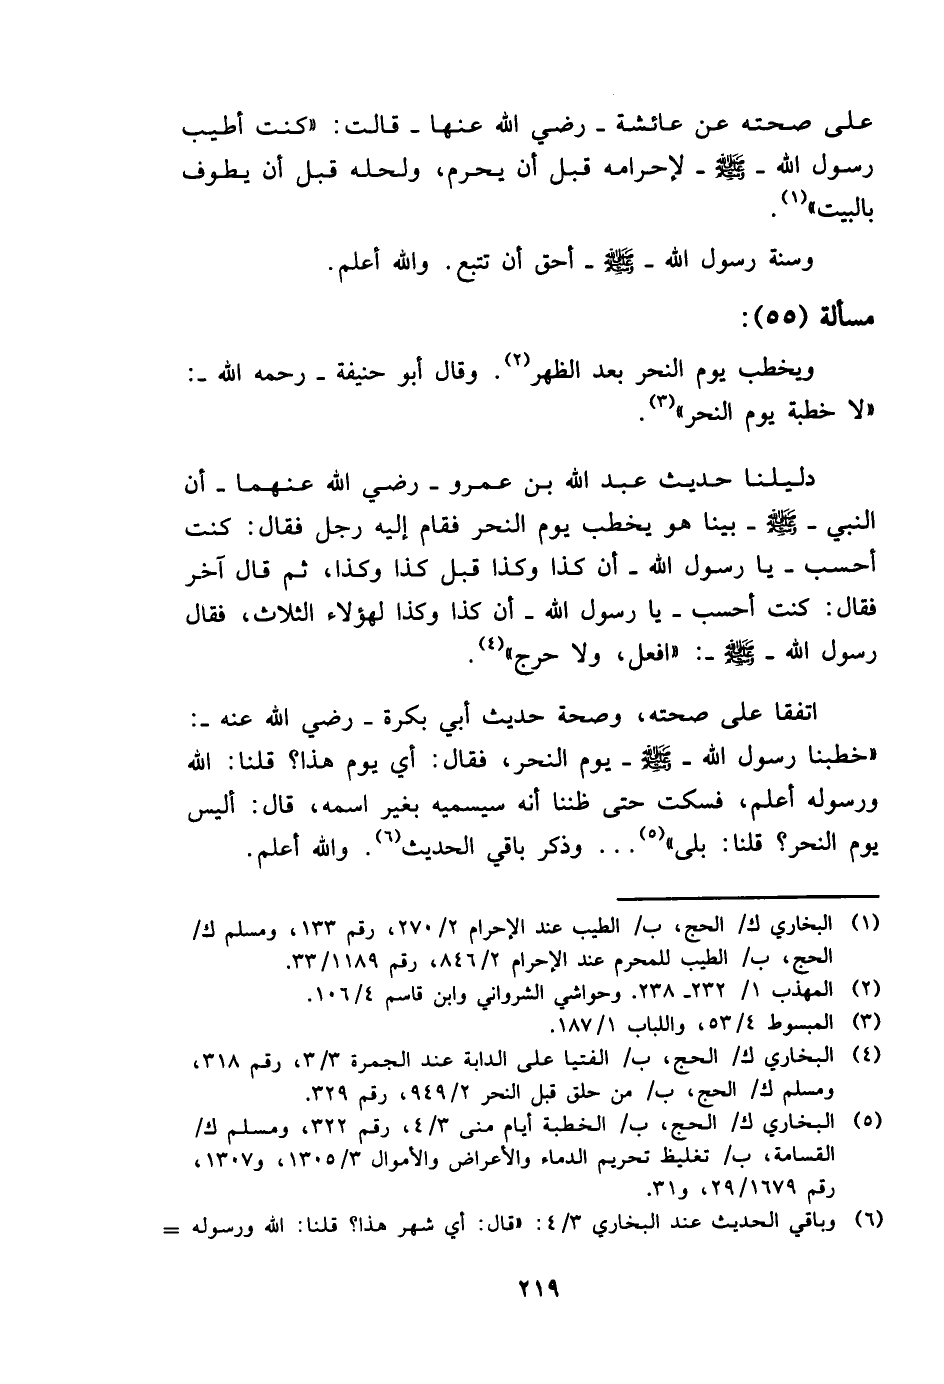 على صحته عن عائشة ـ رضي الله عنها ـ قالت: «كنت أطيب
رسول الله ـ ﷺ ـ لإحرامه قبل أن يحرم، ولحله قبل أن يطوف
بالبيت»(١).
وسنة رسول الله ـ ﷺ ـ أحق أن تتبع. والله أعلم.
مسألة (٥٥):
ويخطب يوم النحر بعد الظهر(٢). وقال أبو حنيفة ـ رحمه الله ـ:
«لا خطبة يوم النحر»(٣).
دليلنا حديث عبد الله بن عمرو ـ رضي الله عنهما ـ أن
النبي ـ ﷺ ـ بينا هو يخطب يوم النحر فقام إليه رجل فقال: كنت
أحسب ـ يا رسول الله ـ أن كذا وكذا قبل كذا وكذا، ثم قال آخر
فقال: كنت أحسب ـ يا رسول الله ـ أن كذا وكذا لهؤلاء الثلاث، فقال
رسول الله ـ ﷺ ـ: «افعل، ولا حرج»(٤).
اتفقا على صحته، وصحة حديث أبي بكرة ـ رضي الله عنه ـ:
«خطبنا رسول الله ـ ﷺ ـ يوم النحر، فقال: أي يوم هذا؟ قلنا: الله
ورسوله أعلم، فسكت حتى ظننا أنه سيسميه بغير اسمه، قال: أليس
يوم النحر؟ قلنا: بلى»(٥)... وذكر باقي الحديث(٦). والله أعلم.
(١) البخاري ك/ الحج، ب/ الطيب عند الإحرام ٢/ ٢٧٠، رقم ١٣٣، ومسلم ك/
الحج، ب/ الطيب للمحرم عند الإحرام ٢/ ٨٤٦، رقم ٣٣/١١٨٩.
(٢) المهذب ١/ ٢٣٢ـ ٢٣٨. وحواشي الشرواني وابن قاسم ٤/ ١٠٦.
(٣) المبسوط ٤/ ٥٣، واللباب ١/ ١٨٧.
(٤) البخاري ك/ الحج، ب/ الفتيا على الدابة عند الجمرة ٣/ ٣، رقم ٣١٨،
ومسلم ك/ الحج، ب/ من حلق قبل النحر ٢/ ٩٤٩، رقم ٣٢٩.
(٥) البخاري ك/ الحج، ب/ الخطبة أيام منى ٣/ ٤، رقم ٣٢٢، ومسلم ك/
القسامة، ب/ تغليظ تحريم الدماء والأعراض والأموال ٣/ ١٣٠٥، و١٣٠٧،
رقم ٢٩/١٦٧٩، و٣١.
(٦) وباقي الحديث عند البخاري ٣/ ٤: «قال: أي شهر هذا؟ قلنا: الله ورسوله =
٢١٩